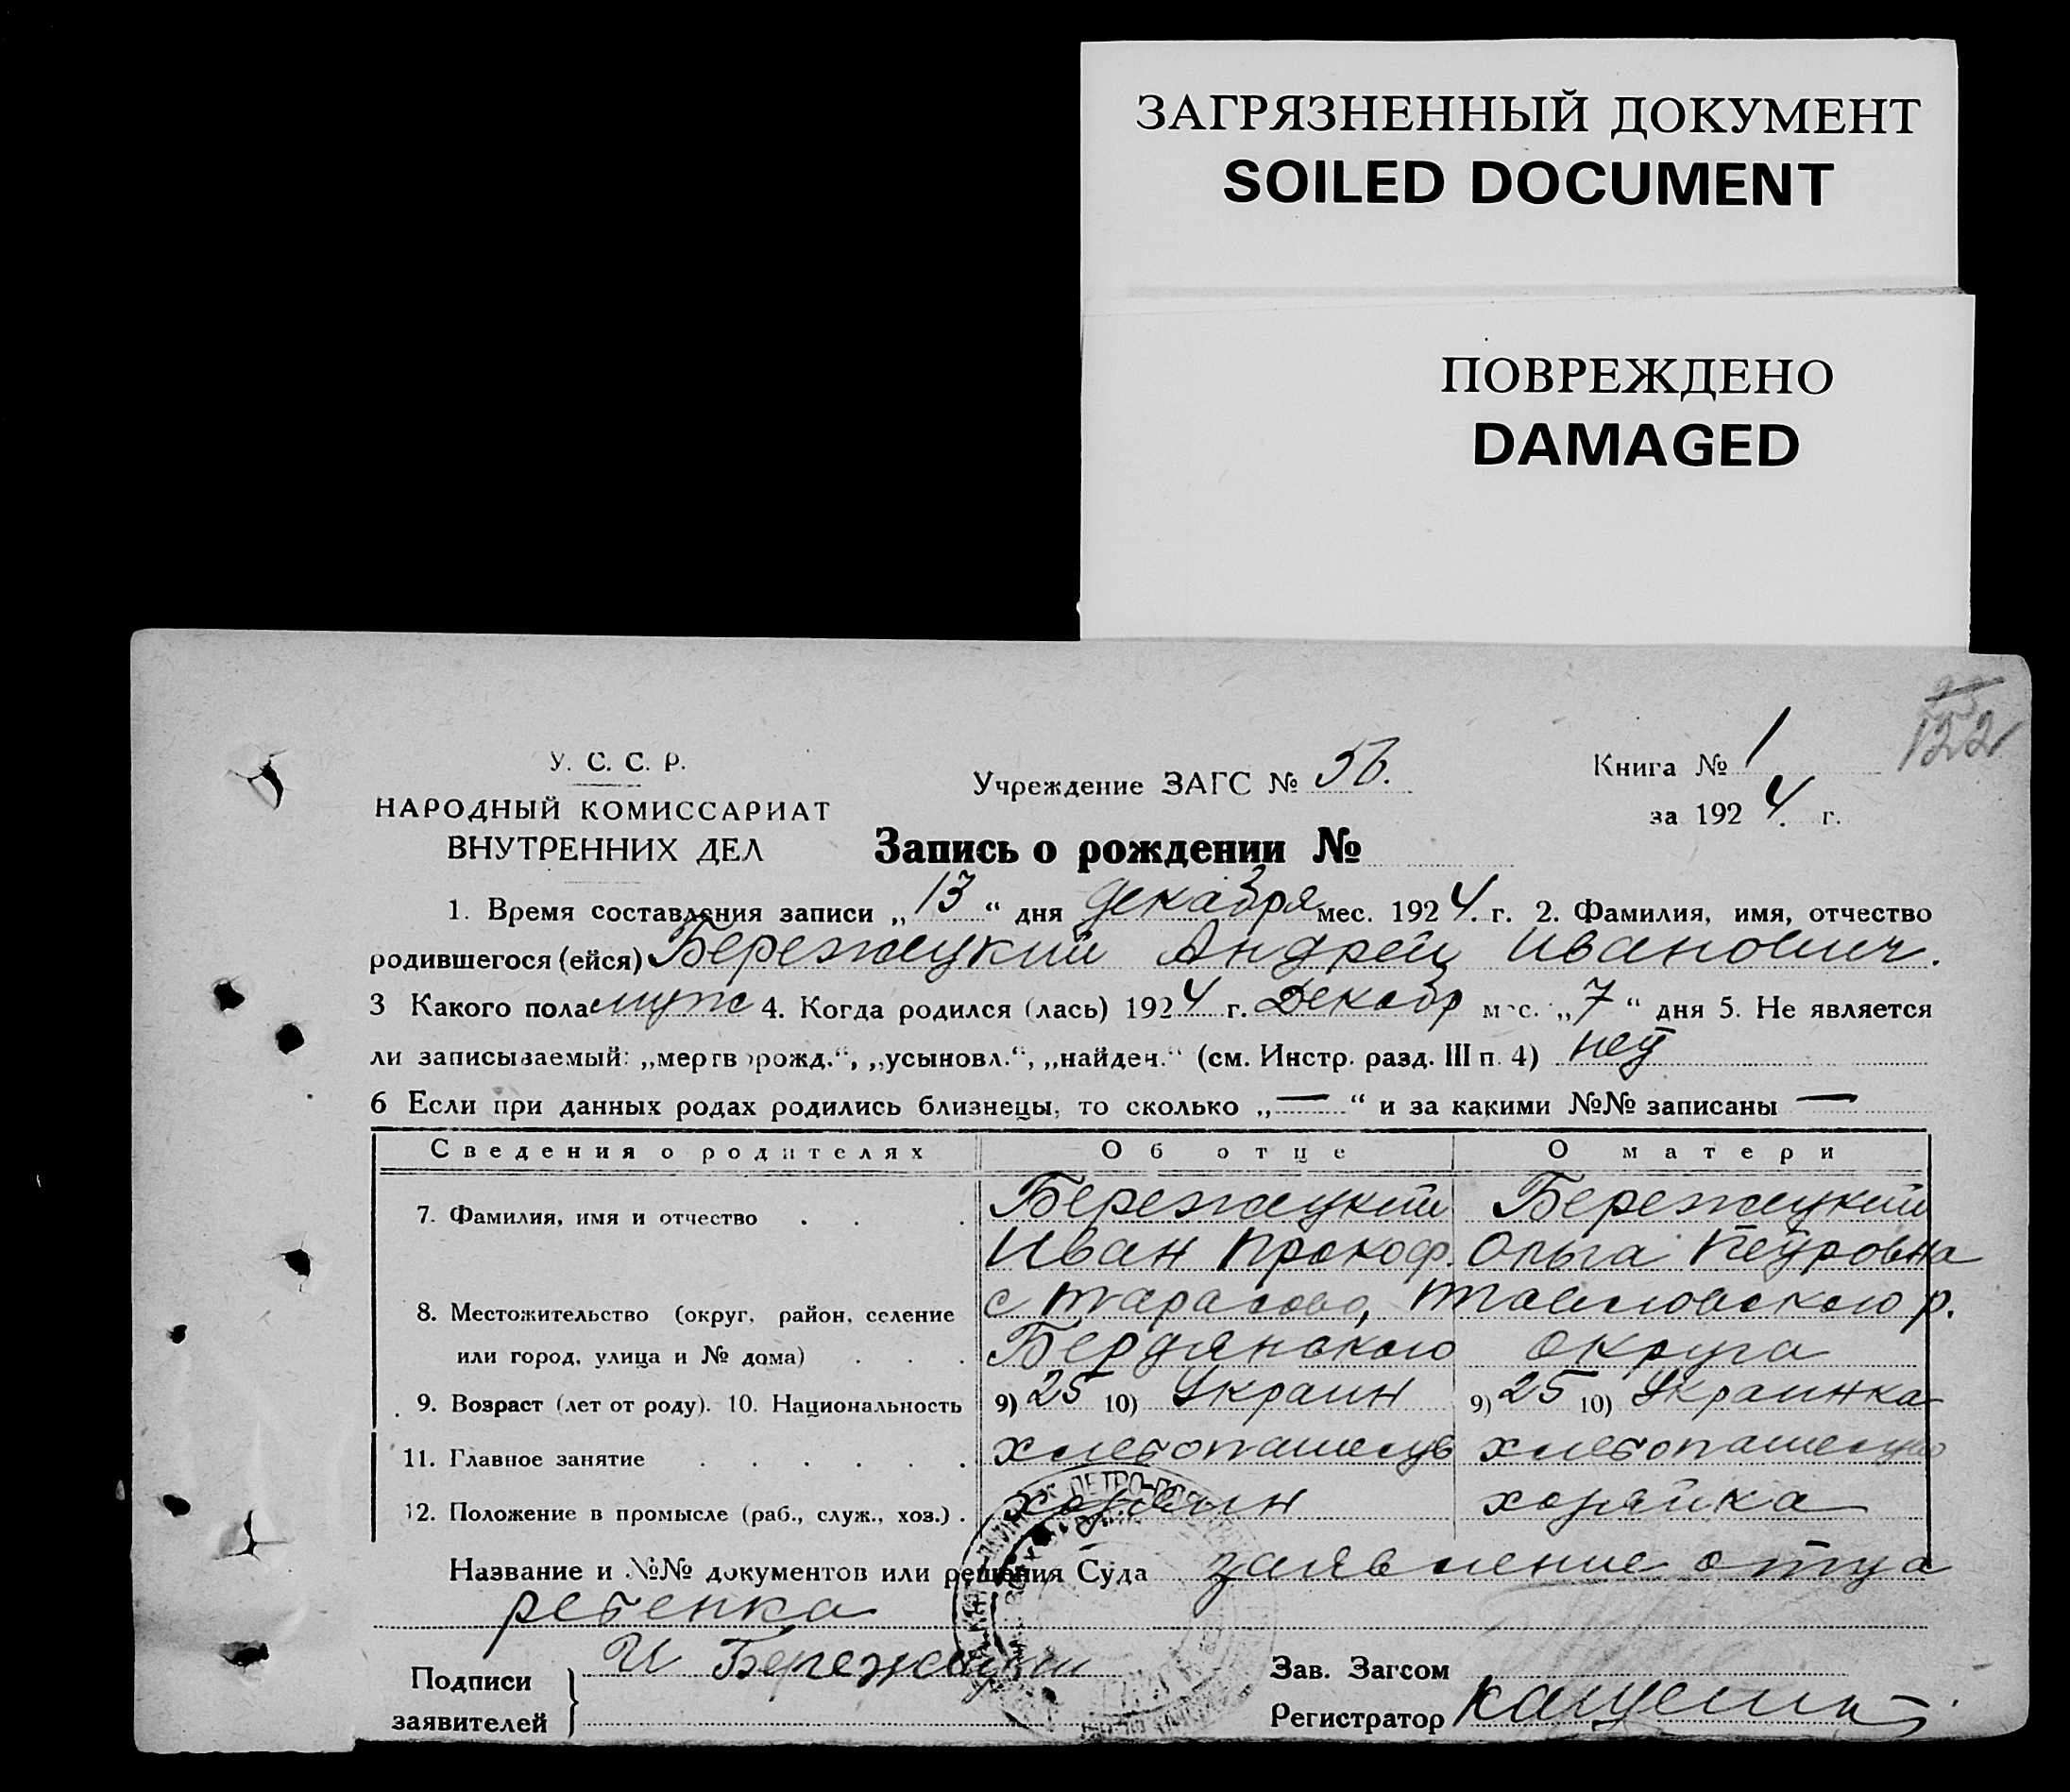 ЗАГРЯЗНЕННЫЙ ДОКУМЕНТ
SOILED DOCUMENT
ПОВРЕЖДЕНО
DAMAGED
122
У. С. С. Р.
НАРОДНЫЙ КОМИССАРИАТ
ВНУТРЕННИХ ДЕЛ
Учреждение ЗАГС № 56.
Книга № 1
за 1924 г.
Запись о рождении №
1. Время составления записи „13“ дня декабря мес. 1924. г. 2. Фамилия, имя, отчество
родившегося (ейся) Бережецкий Андрей Иванович.
3 Какого пола муж 4. Когда родился (лась) 1924 г. Декабр мес. „7“ дня 5. Не является
ли записываемый: „мертворожд.“, „усыновл.“, „найден.“ (см. Инстр. разд. III п. 4) нет
6 Если при данных родах родились близнецы, то сколько „—“ и за какими №№ записаны —
Сведения о родителях Об отце О матери
7. Фамилия, имя и отчество Бережецкий Бережецкий
Иван Прокоф. Ольга Петровна
8. Местожительство (округ, район, селение с Тарасово, р.
или город, улица и № дома) Бердянского округа
9. Возраст (лет от роду). 10. Национальность 9) 25 10) Украин 9) 25 10) Украинка
11. Главное занятие хлебопашец хлебопашец
12. Положение в промысле (раб., служ., хоз.) . хозяин хозяйка
Название и №№ документов или решения Суда заявление отца
ребенка
Подписи И Бережецкий Зав. Загсом
заявителей Регистратор